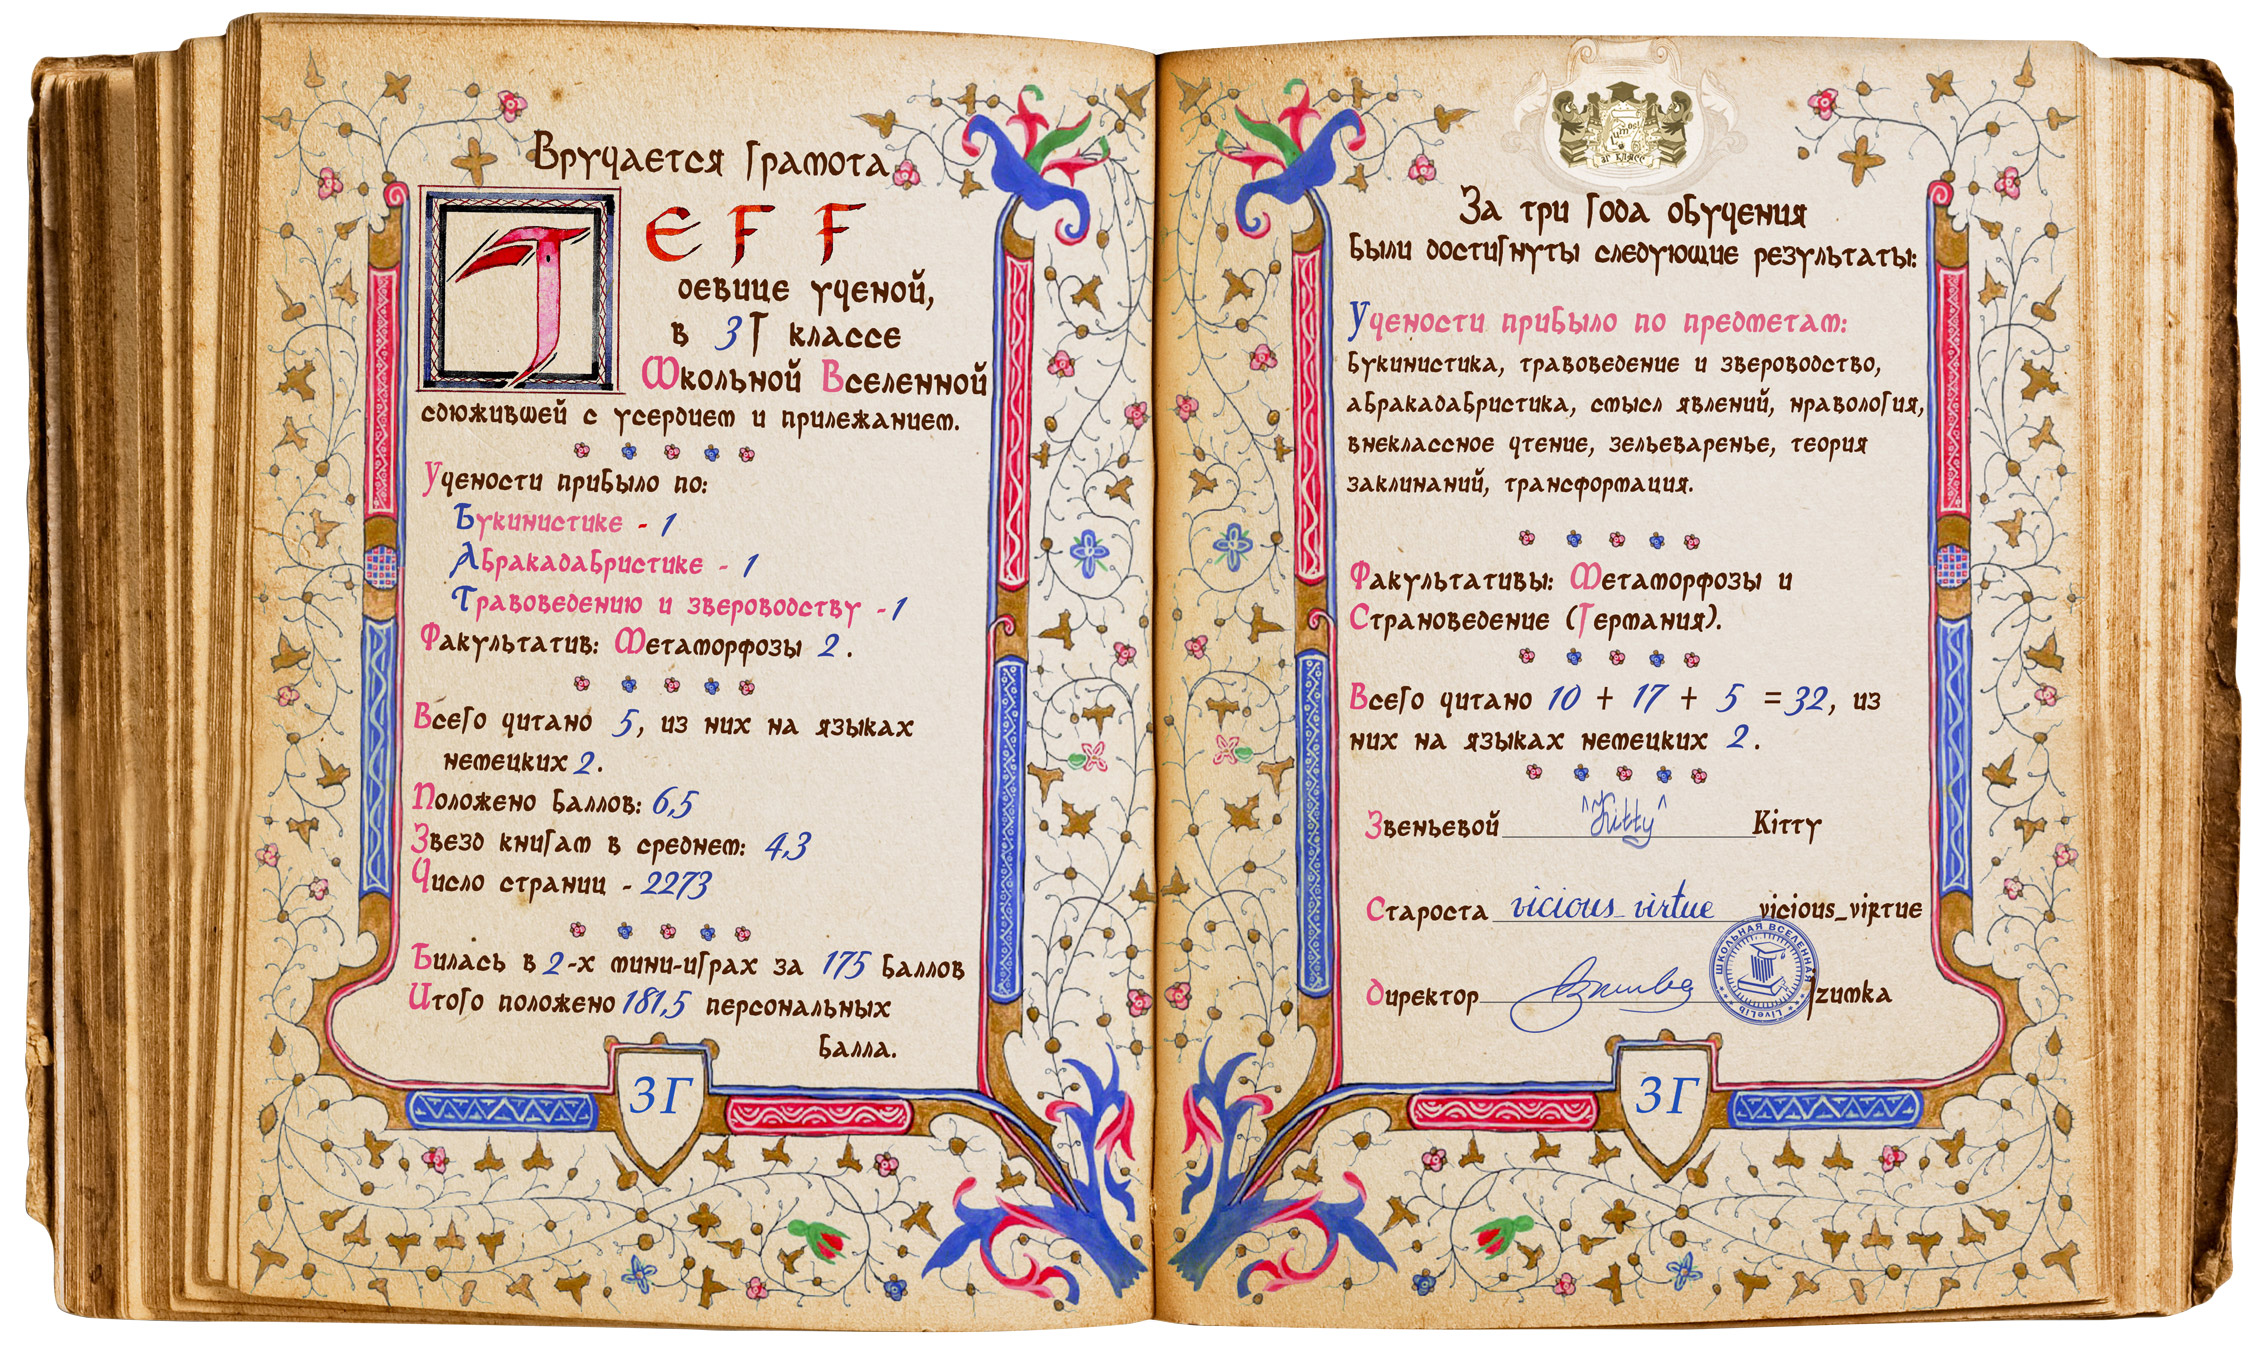 Вручается Грамота
TEFF
девице ученой,
в 3Г классе
Школьной Вселенной
сдюжившей с усердием и прилежанием.
Учености прибыло по:
Букинистике - 1
Абракадабристике - 1
Травоведению и звероводству - 1
Факультатив: Метаморфозы 2.
Всего читано 5, из них на языках
немецких 2.
Положено баллов: 6,5
Звезд книгам в среднем: 4,3
Число страниц - 2273
Билась в 2-х мини-играх за 175 баллов
Итого положено 181,5 персональных
балла.
3Г
За три года обучения
были достигнуты следующие результаты:
Учености прибыло по предметам:
Букинистика, травоведение и звероводство,
абракадабристика, смысл явлений, нравология,
внеклассное чтение, зельеваренье, теория
заклинаний, трансформация.
Факультативы: Метаморфозы и
Страноведение (Германия).
Всего читано 10 + 17 + 5 = 32, из
них на языках немецких 2.
Звеньевой ^Kitty^ Kitty
Староста vicious_virtue vicious_virtue
Директор Izumka
ШКОЛЬНАЯ ВСЕЛЕННАЯ
LiveLib
3Г